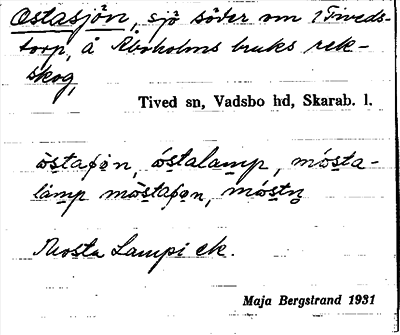 Östasjön, sjö söder om 1 Tiveds-
torp, å Åboholms bruks rek-
skog,
Tived sn, Vadsbo hd, Skarab. l.
östaʃøn, óstalamp, mósta-
lámp möstaʃøn, móstn̥
Mosta Lampi ek.
Maja Bergstrand 1931